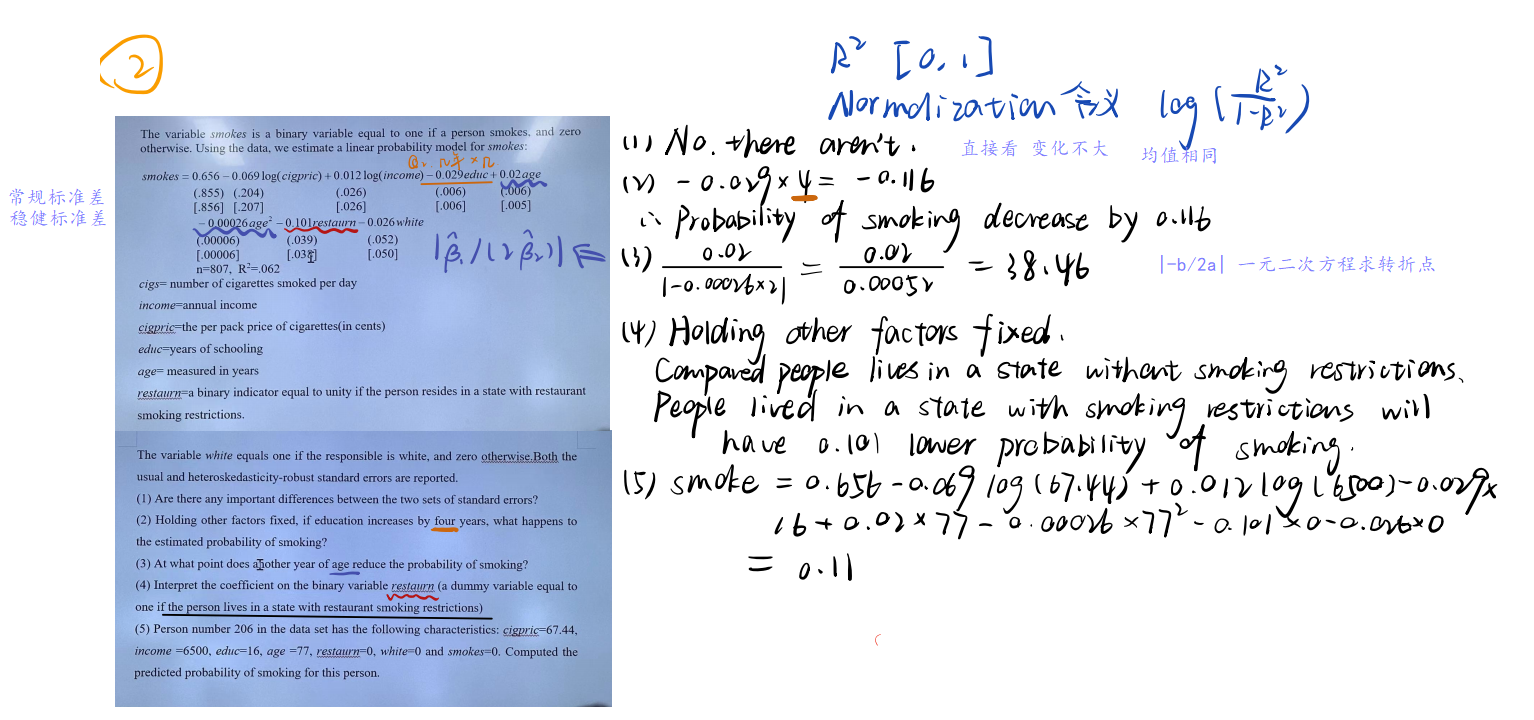 ②
R² [0, 1]
Normalization 含义 log(R²/1-R²)
The variable smokes is a binary variable equal to one if a person smokes, and zero
otherwise. Using the data, we estimate a linear probability model for smokes:
smokes = 0.656 − 0.069 log(cigpric) + 0.012 log(income) − 0.029educ + 0.02age
常规标准差
(.855) (.204) (.026) (.006) (.006)
稳健标准差
[.856] [.207] [.026] [.006] [.005]
− 0.00026age² − 0.101restaurn − 0.026white
(.00006) (.039) (.052)
[.00006] [.038] [.050]
n=807, R²=.062
|β̂₁/(2β̂₂)| ⇐
cigs= number of cigarettes smoked per day
income=annual income
cigpric=the per pack price of cigarettes(in cents)
educ=years of schooling
age= measured in years
restaurn=a binary indicator equal to unity if the person resides in a state with restaurant
smoking restrictions.
The variable white equals one if the responsible is white, and zero otherwise.Both the
usual and heteroskedasticity-robust standard errors are reported.
(1) Are there any important differences between the two sets of standard errors?
(2) Holding other factors fixed, if education increases by four years, what happens to
the estimated probability of smoking?
(3) At what point does another year of age reduce the probability of smoking?
(4) Interpret the coefficient on the binary variable restaurn (a dummy variable equal to
one if the person lives in a state with restaurant smoking restrictions)
(5) Person number 206 in the data set has the following characteristics: cigpric=67.44,
income =6500, educ=16, age =77, restaurn=0, white=0 and smokes=0. Computed the
predicted probability of smoking for this person.
(1) No. there aren't.
直接看 变化不大 均值相同
(2) -0.029×4 = -0.116
∴ Probability of smoking decrease by 0.116
(3) 0.02/|-0.00026×2| = 0.02/0.00052 = 38.46
|-b/2a| 一元二次方程求转折点
(4) Holding other factors fixed.
Compared people lives in a state without smoking restrictions,
People lived in a state with smoking restrictions will
have 0.101 lower probability of smoking.
(5) smoke = 0.656 - 0.069 log(67.44) + 0.012 log(6500) - 0.029×
16 + 0.02×77 - 0.00026×77² - 0.101×0 - 0.026×0
= 0.11